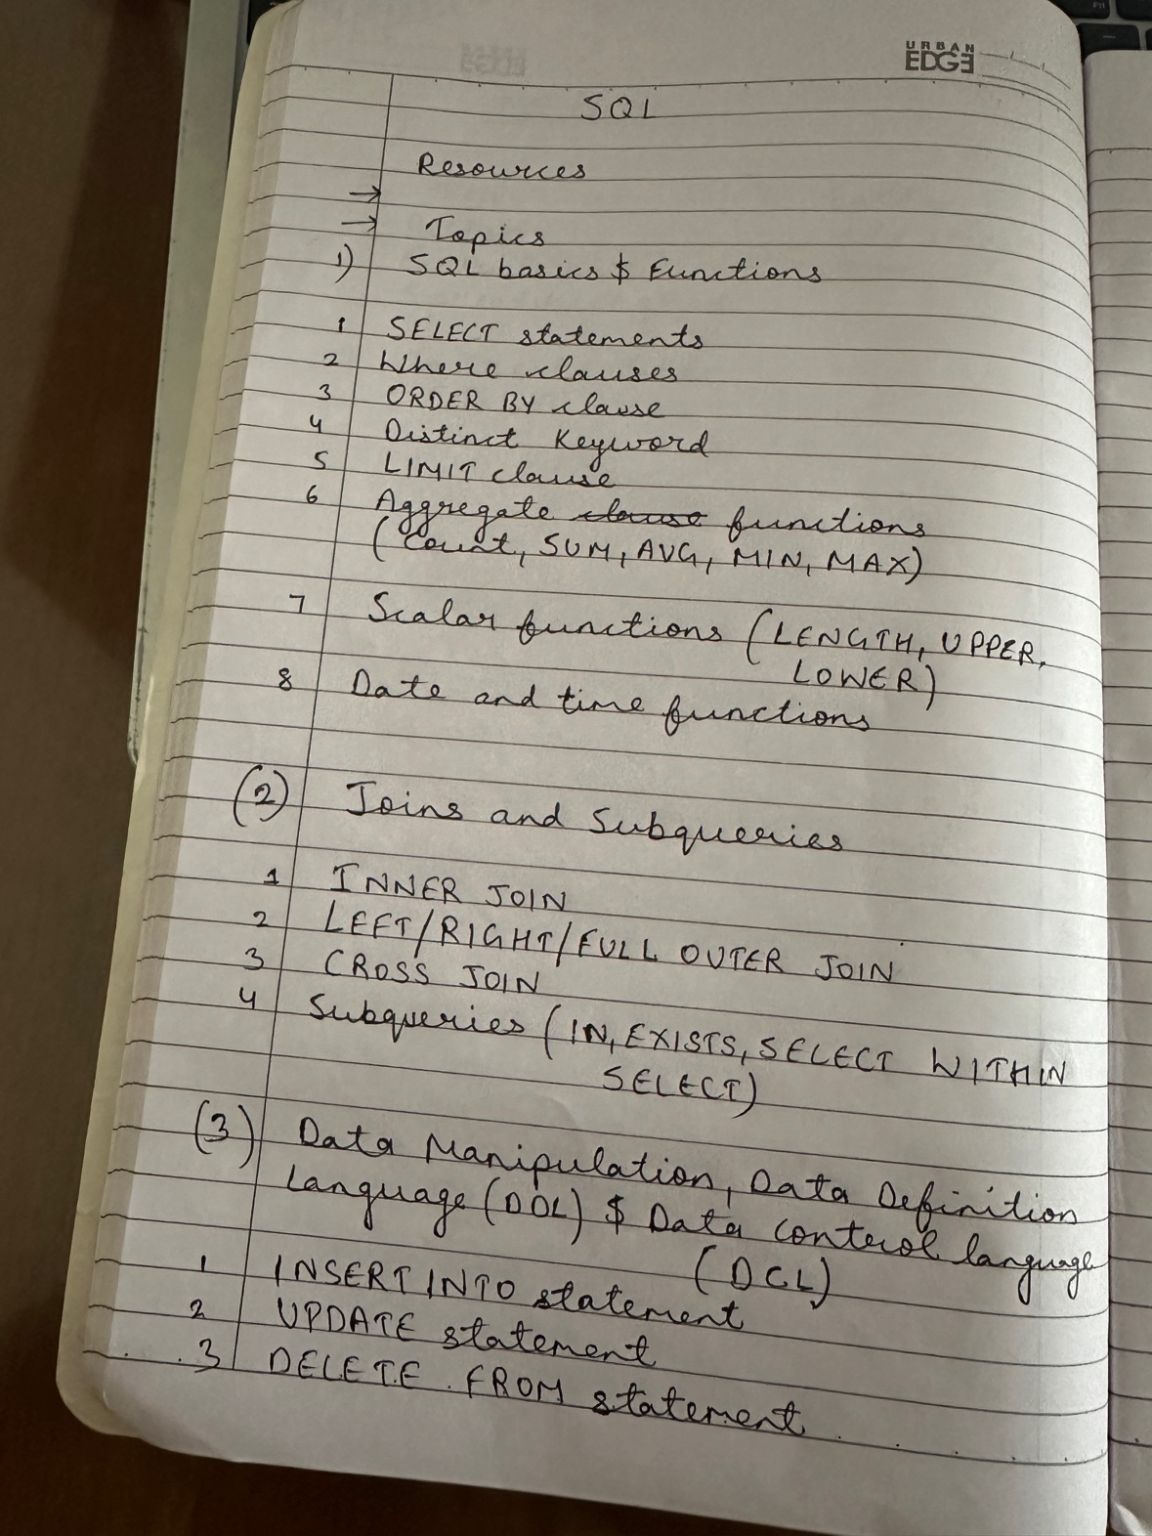 URBAN
EDGE
SQL
Resources
→
→ Topics
1) SQL basics $ Functions
1 SELECT statements
2 Where clauses
3 ORDER BY clause
4 Distinct Keyword
5 LIMIT clause
6 Aggregate clause functions
(Count, SUM, AVG, MIN, MAX)
7 Scalar functions (LENGTH, UPPER,
LOWER)
8 Date and time functions
(2) Joins and Subqueries
1 INNER JOIN
2 LEFT/RIGHT/FULL OUTER JOIN
3 CROSS JOIN
4 Subqueries (IN, EXISTS, SELECT WITHIN
SELECT)
(3) Data Manipulation, Data Definition
Language (DDL) $ Data control language
(DCL)
1 INSERT INTO statement
2 UPDATE statement
3 DELETE FROM statement